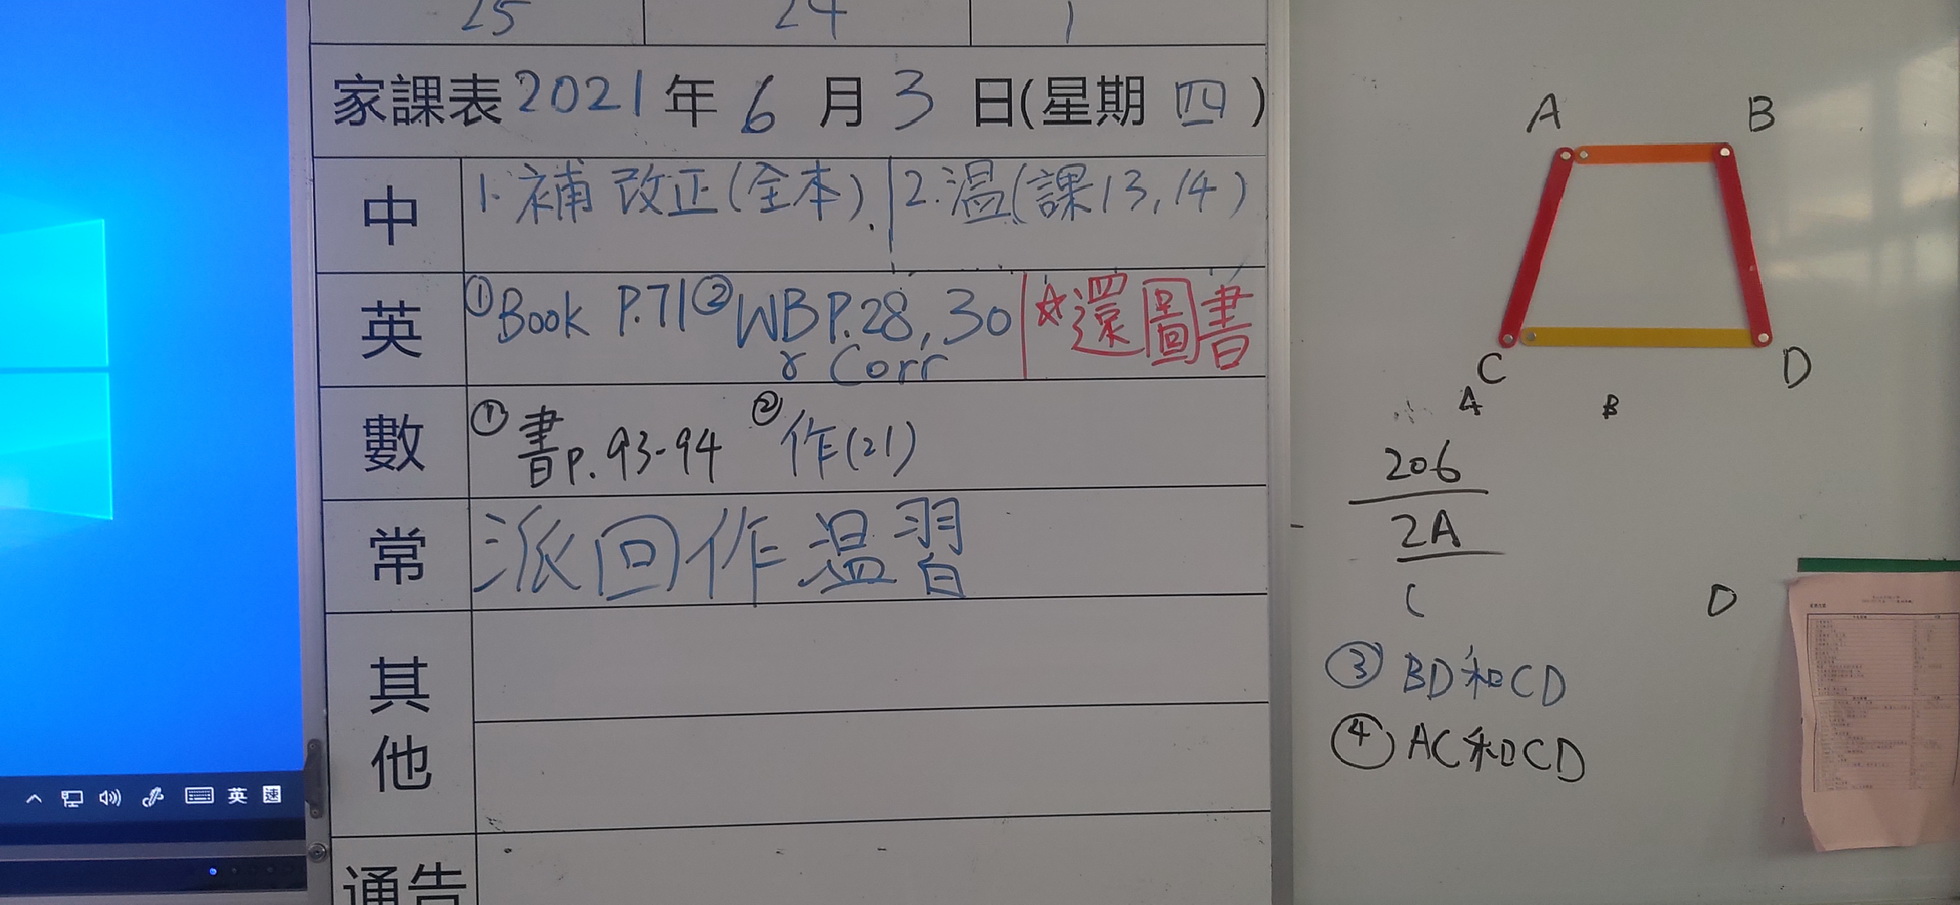 25 24 1
家課表 2021 年 6 月 3 日(星期 四 )
中 1. 補 改正(全本). 2. 温(課13, 14)
英 ①Book P.71 ②WB P.28, 30 ☆還圖書
& Corr
數 ①書p. 93-94 ②作(21)
常 派回作温習
其他
通告
英 速
A B
C D
A B
206
2A
C D
③ BD和CD
④ AC和CD